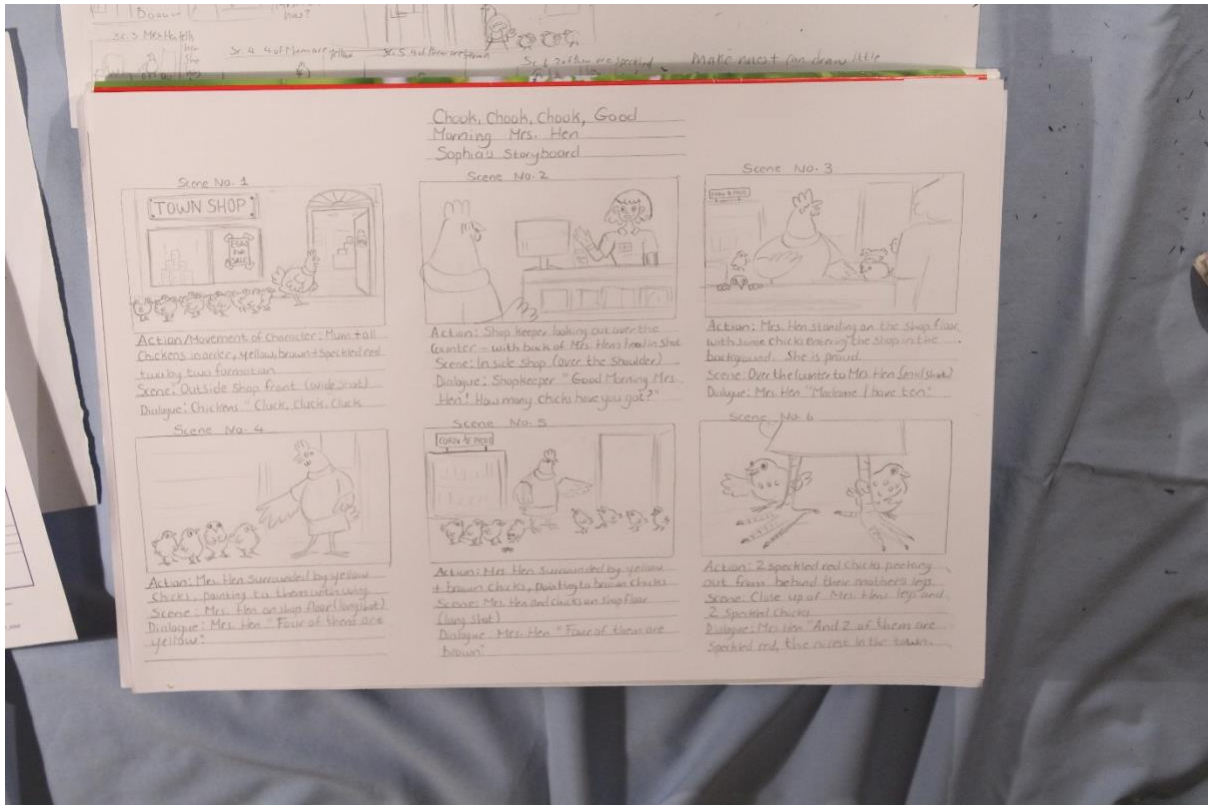 Sc. 3 Mrs Hen tells
Sc. 4 4 of them are yellow
Sc. 5 4 of them are brown
Sc 6 2 of them are speckled
Make nicest can draw little
Chook, Chook, Chook, Good
Morning Mrs. Hen
Sophia's Storyboard
Scene No. 1
TOWN SHOP
EGGS
FOR
SALE
Action/Movement of Character: Mum + all
Chickens in order, yellow, brown + speckled red
two by two formation
Scene: Outside shop front (wide shot)
Dialogue: Chickens "Cluck, Cluck, Cluck
Scene No. 2
Action: Shop keeper looking out over the
Counter - with back of Mrs. Hen's head in shot
Scene: Inside shop (over the shoulder)
Dialogue: Shopkeeper "Good Morning Mrs.
Hen! How many chicks have you got?"
Scene No. 3
Action: Mrs. Hen standing on the shop floor
with some chicks entering the shop in the
background. She is proud.
Scene: Over the counter to Mrs Hen (mid shot)
Dialogue: Mrs. Hen "Madame I have ten"
Scene No. 4
Action: Mrs Hen Surrounded by yellow
Chicks, pointing to them with wing
Scene: Mrs. Hen on shop floor (long shot)
Dialogue: Mrs. Hen "Four of them are
yellow"
Scene No. 5
Action: Mrs Hen Surrounded by yellow
+ brown Chicks, pointing to brown Chicks
Scene: Mrs Hen and Chicks on shop floor
(long shot)
Dialogue: Mrs. Hen "Four of them are
brown"
Scene No. 6
Action: 2 speckled red chicks peeking
out from behind their mother's legs
Scene: Close up of Mrs. Hen's legs and
2 Speckled Chicks
Dialogue: Mrs Hen "And 2 of them are
Speckled red, the nicest in the town.